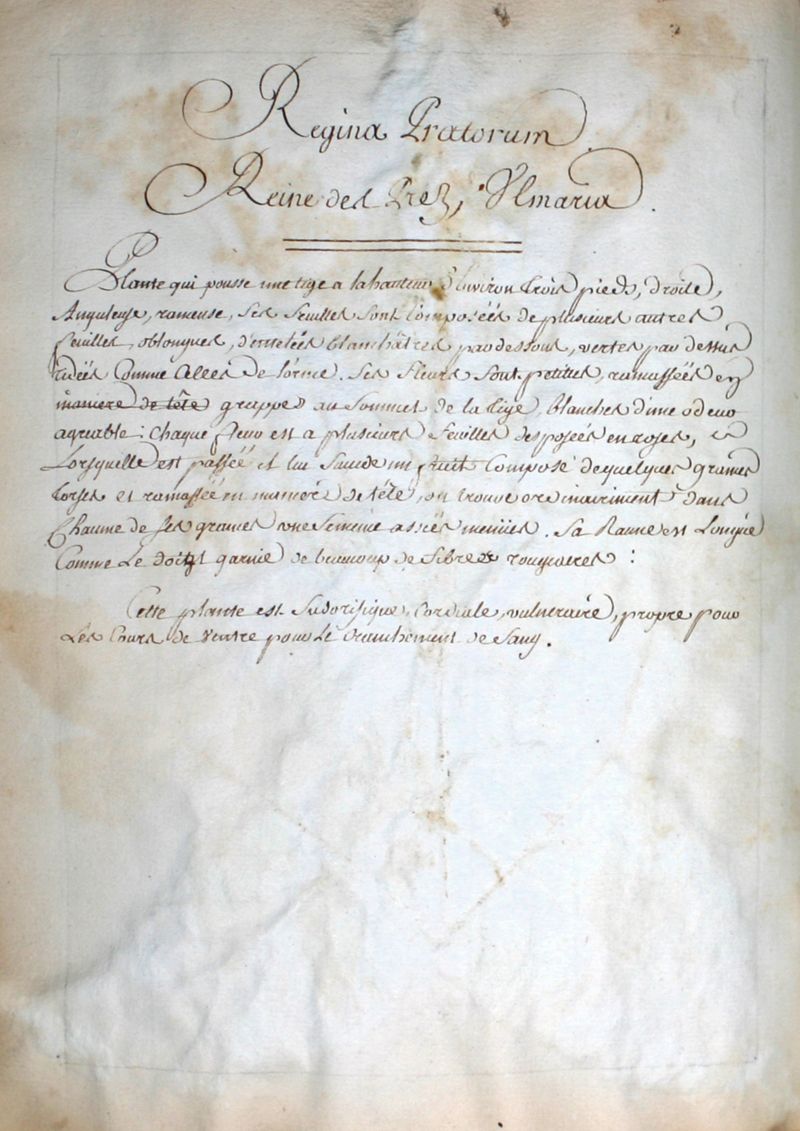 Regina Pratorum.
Reine des Prez, Vlmaria.
Plante qui pousse une tige a la hauteur d'Environ trois pieds, droite,
Anguleuse, rameuse, Ses feuilles sont Composeés de plusieurs autres
feuilles, oblongues, dentelées blanchâtres par dessous, vertes par dessus
ridées Comme Celles de l'orme. Ses fleurs sont petites, ramasseés en
maniere de tête grappe au Sommet de la tige, blanches d'une odeur
agreable: Chaque fleur est a plusieurs feuilles desposeés en roses,
Lorsquelle est passeé il lui Saucede un fruit Compose de quelques graines
torses et ramasseé en maniere de tête, on trouve ordinairement dans
Chacune de ses graines une Semence assés menüe. Sa Racine est Longue
Comme Le doitgt garnie de beaucoup de fibres rougeatres:
Cette plante est Sudorifique, Cordiale, vulneraire, propre pour
Les Cours de Ventre pour Le Crachement de Sang.